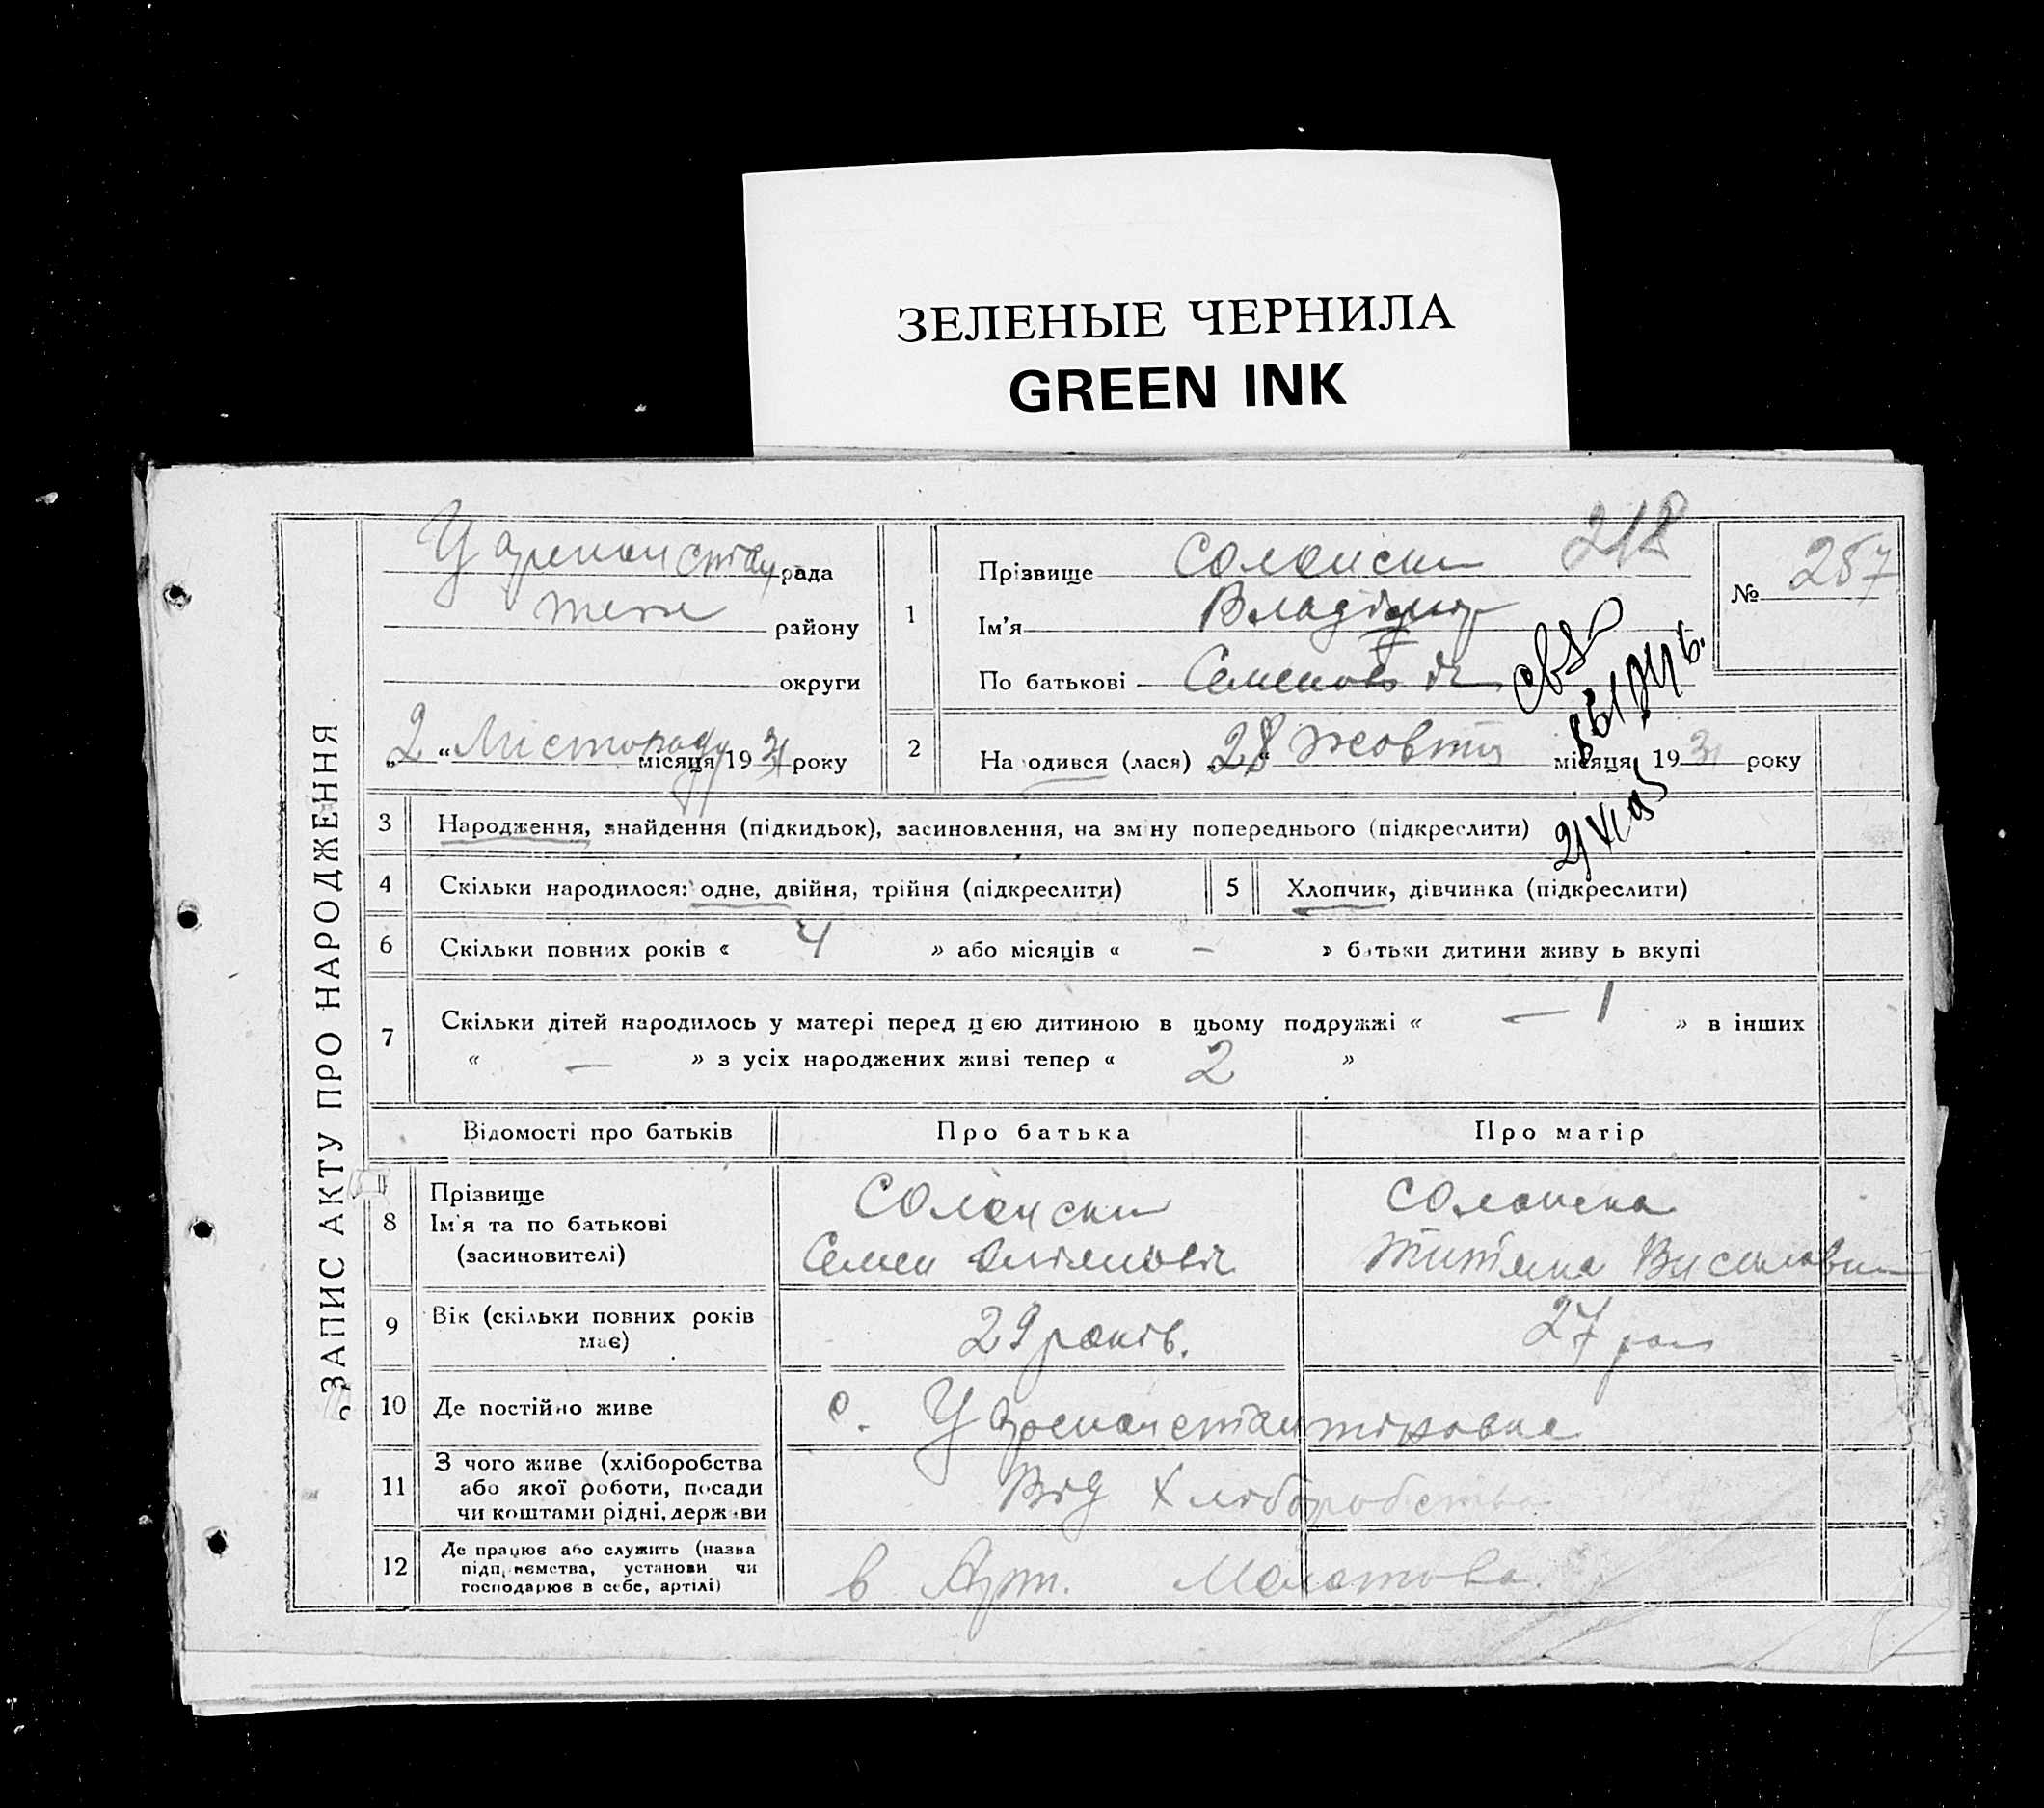 ЗЕЛЕНЫЕ ЧЕРНИЛА
GREEN INK
ЗАПИС АКТУ ПРО НАРОДЖЕННЯ
рада
району
округи
„ 2 “ Листопаду місяця 1931 року
1
Прізвище Солонски 218
Ім'я Владімир
По батькові Семенов
№ 257
2
На одився (лася) „ 28 “ жовтня місяця 1931 року
3 Народження, знайдення (підкидьок), засиновлення, на зм ну попереднього (підкреслити)
4 Скільки народилося: одне, двійня, трійня (підкреслити)
5 Хлопчик, дівчинка (підкреслити)
6 Скільки повних років « 4 » або місяців « – » батьки дитини живу ь вкупі
7 Скільки дітей народилось у матері перед цією дитиною в цьому подружжі « – 1 » в інших
« – » з усіх народжених живі тепер « 2 »
Відомості про батьків
Про батька
Про матір
8
Прізвище
Ім'я та по батькові
(засиновителі)
Солонски
Семен
Солонска
9
Вік (скільки повних років
має)
29 років.
27 рок
10 Де постійно живе
с.
11
З чого живе (хліборобства
або якої роботи, посади
чи коштами рідні, держ ви
Від Хліборобства
12
Де працює або служить (назва
підп, иємства, установи чи
господарює в себе, артілі)
в Арт.